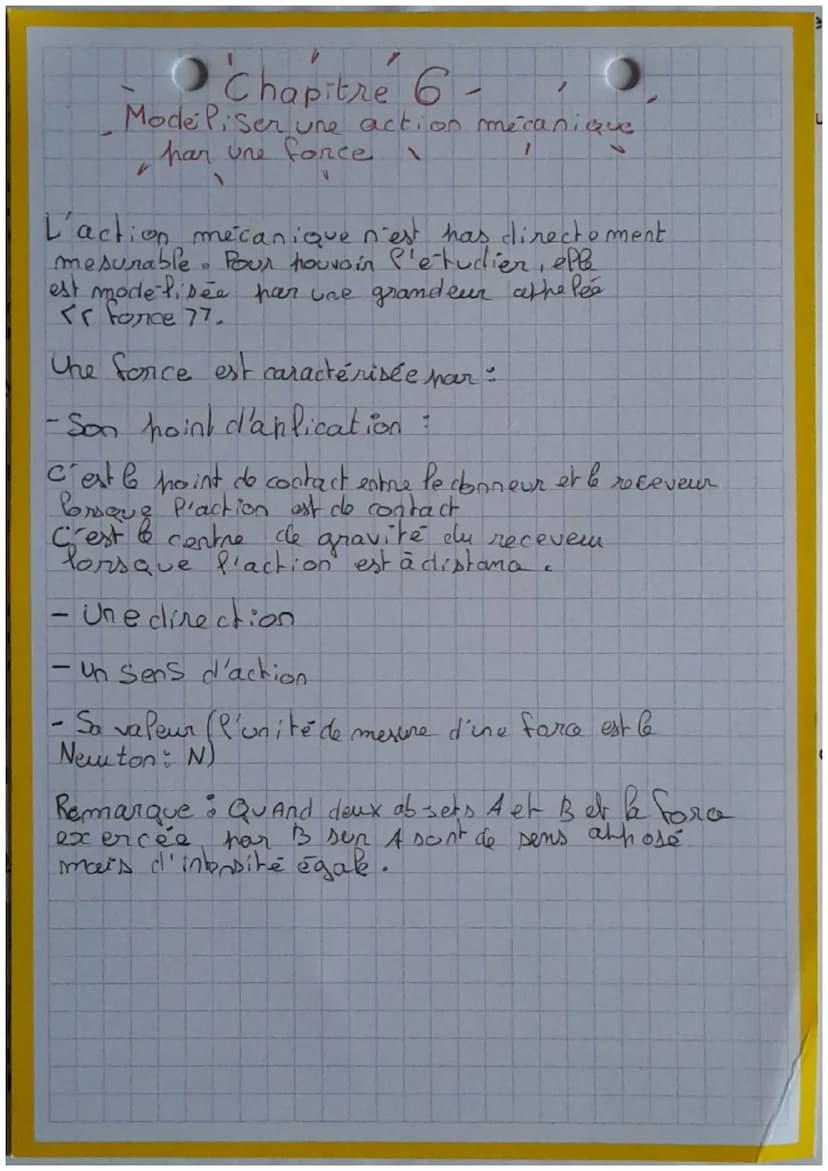 - Chapitre 6 -
Modéliser une action mécanique
par une force
L'action mécanique n'est pas directement
mesurable. Pour pouvoir l'étudier, elle
est modélisée par une grandeur appelée
<< force >>.
Une force est caractérisée par :
- Son point d'aplication :
C'est le point de contact entre le donneur et le receveur
lorsque l'action est de contact
C'est le centre de gravité du receveur
lorsque l'action est à distance.
- Une direction
- un sens d'action
- Sa valeur (l'unité de mesure d'une force est le
Newton : N)
Remarque : QuAnd deux objets A et B et la force
exercée par B sur A sont de sens opposé
mais d'intensité égale.